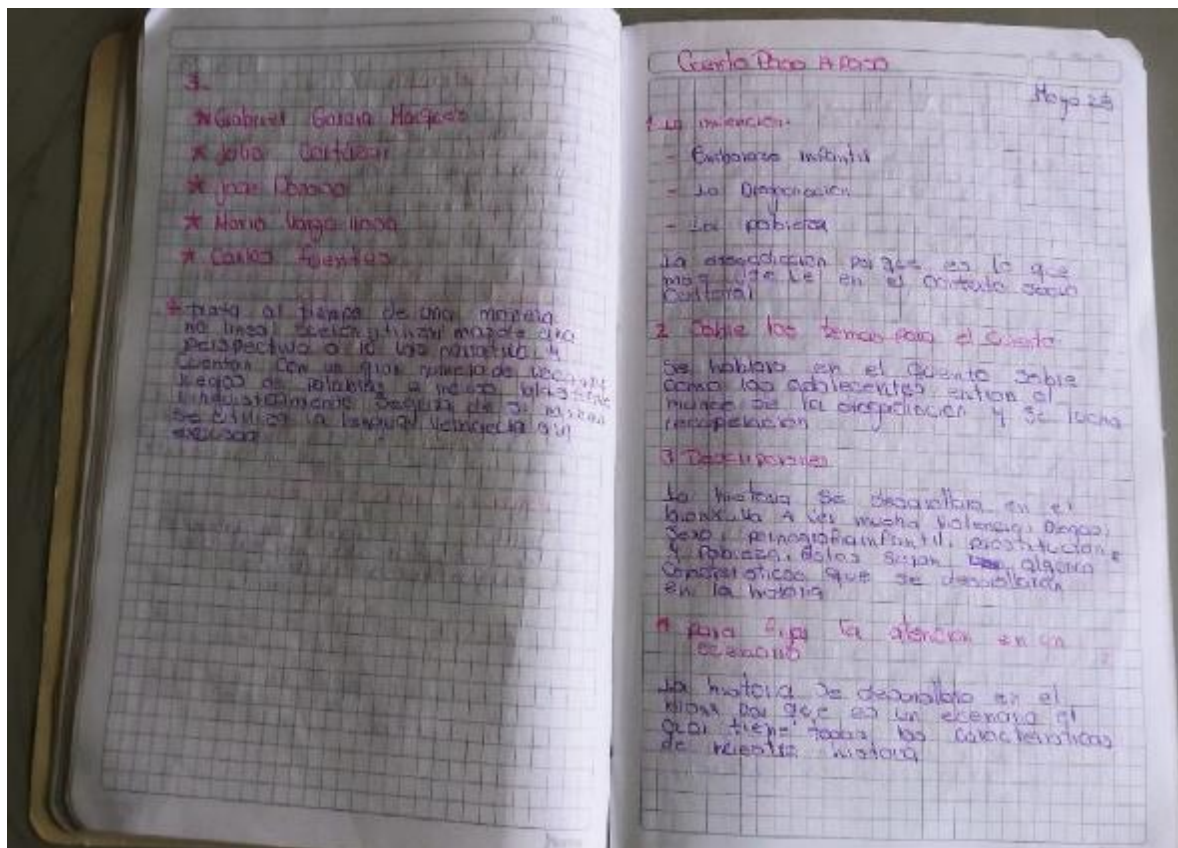 3.
* Gabriel Garcia Marquez
* Julio Cortazar
* Jose Donoso
* Mario Vargas llosa
* Carlos fuentes
* trata al tiempo de una manera
no lineal utilizan mas de una
perspectiva o la voz narrativa y
cuentan con un gran numero de
juegos de palabras
linguisticamente segura de si misma
se utiliza la lengua sin
excusas
Cuento Paso A Paso
Mayo 23
1. La intencion
- Embarazo infantil
- La Drogadiccion
- La pobreza
La drogadiccion por que es lo que
mas se ve en el contexto socio
cultural
2 Sobre los temas para el Cuento
Se hablara en el cuento sobre
como los adolecentes entran al
mundo de la drogadiccion y se lucha
recuperacion
3
La historia se desarollara en el
bronx va A ver mucha violencia, Drogas,
Sexo, pornografia infantil, prostitucion
y Pobreza. Estas seran algunas
caracteristicas que se desarollaran
en la historia
4 para fijar la atencion en un
ecenario
La historia se desarollara en el
bronx por que es un ecenario el
cual tiene todas las caracteristicas
de nuestra historia